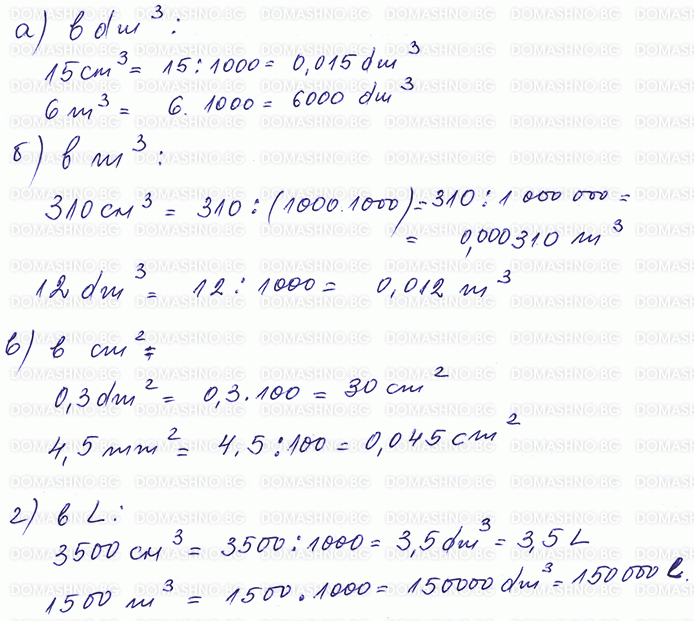 а) в dm³:
15 cm³ = 15 : 1000 = 0,015 dm³
6 m³ = 6. 1000 = 6000 dm³
б) в m³:
310 см³ = 310 : (1000.1000) = 310 : 1 000 000 =
= 0,000310 m³
12 dm³ = 12 : 1000 = 0,012 m³
в) в cm²:
0,3 dm² = 0,3.100 = 30 cm²
4,5 mm² = 4,5 : 100 = 0,045 cm²
г) в L:
3500 см³ = 3500 : 1000 = 3,5 dm³ = 3,5 L
1500 m³ = 1500.1000 = 150000 dm³ = 150 000 L.